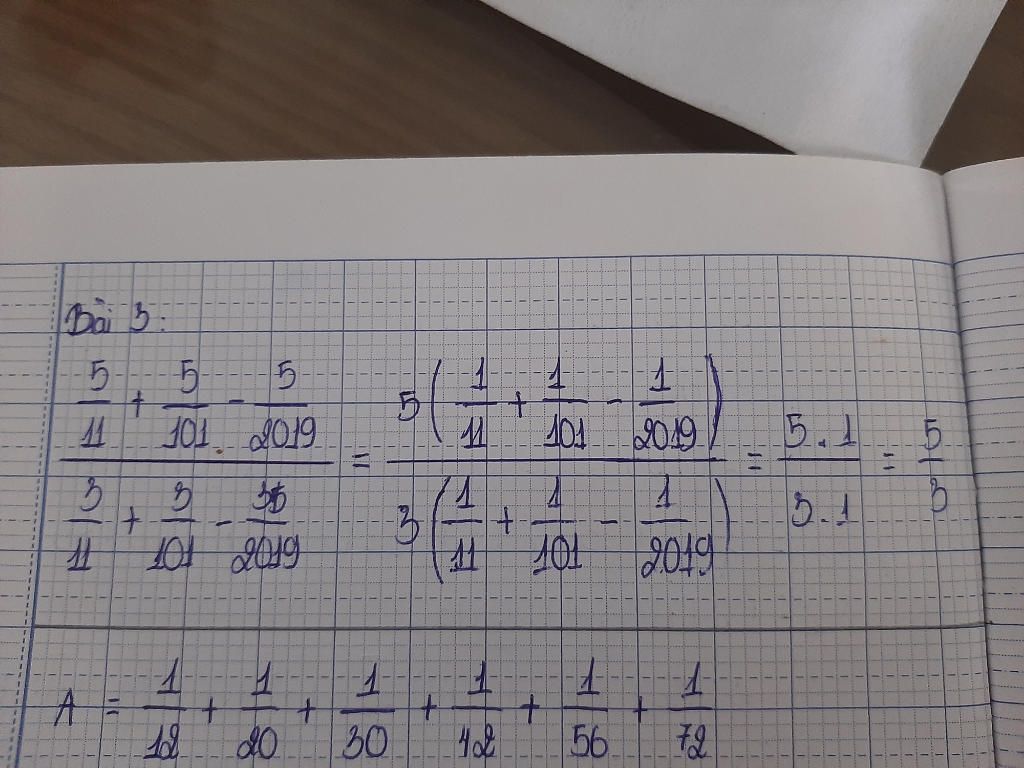 Bài 3:
5/11 + 5/101 - 5/2019 / 3/11 + 3/101 - 3/2019 = 5(1/11 + 1/101 - 1/2019) / 3(1/11 + 1/101 - 1/2019) = 5.1 / 3.1 = 5/3
A = 1/12 + 1/20 + 1/30 + 1/42 + 1/56 + 1/72